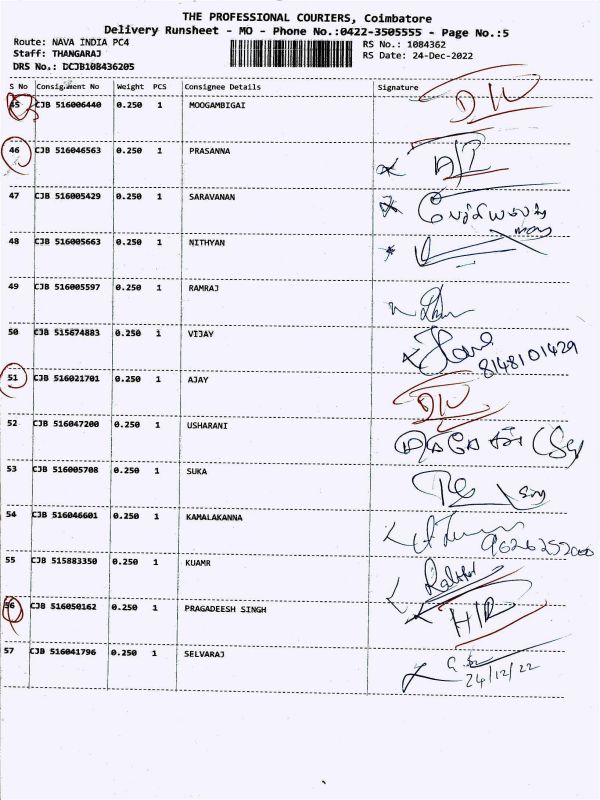 THE PROFESSIONAL COURIERS, Coimbatore
Delivery Runsheet - MO - Phone No.:0422-3505555 - Page No.:5
Route: NAVA INDIA PC4 RS No.: 1084362
Staff: THANGARAJ RS Date: 24-Dec-2022
DRS No.: DCJB108436205
S No Consignment No Weight PCS Consignee Details Signature
45 CJB 516006440 0.250 1 MOOGAMBIGAI
46 CJB 516046563 0.250 1 PRASANNA
47 CJB 516005429 0.250 1 SARAVANAN
48 CJB 516005663 0.250 1 NITHYAN
49 CJB 516005597 0.250 1 RAMRAJ
50 CJB 515674883 0.250 1 VIJAY
8148101429
51 CJB 516021701 0.250 1 AJAY
52 CJB 516047200 0.250 1 USHARANI
53 CJB 516005708 0.250 1 SUKA
54 CJB 516046601 0.250 1 KAMALAKANNA
55 CJB 515883350 0.250 1 KUAMR
56 CJB 516050162 0.250 1 PRAGADEESH SINGH
57 CJB 516041796 0.250 1 SELVARAJ
24/12/22